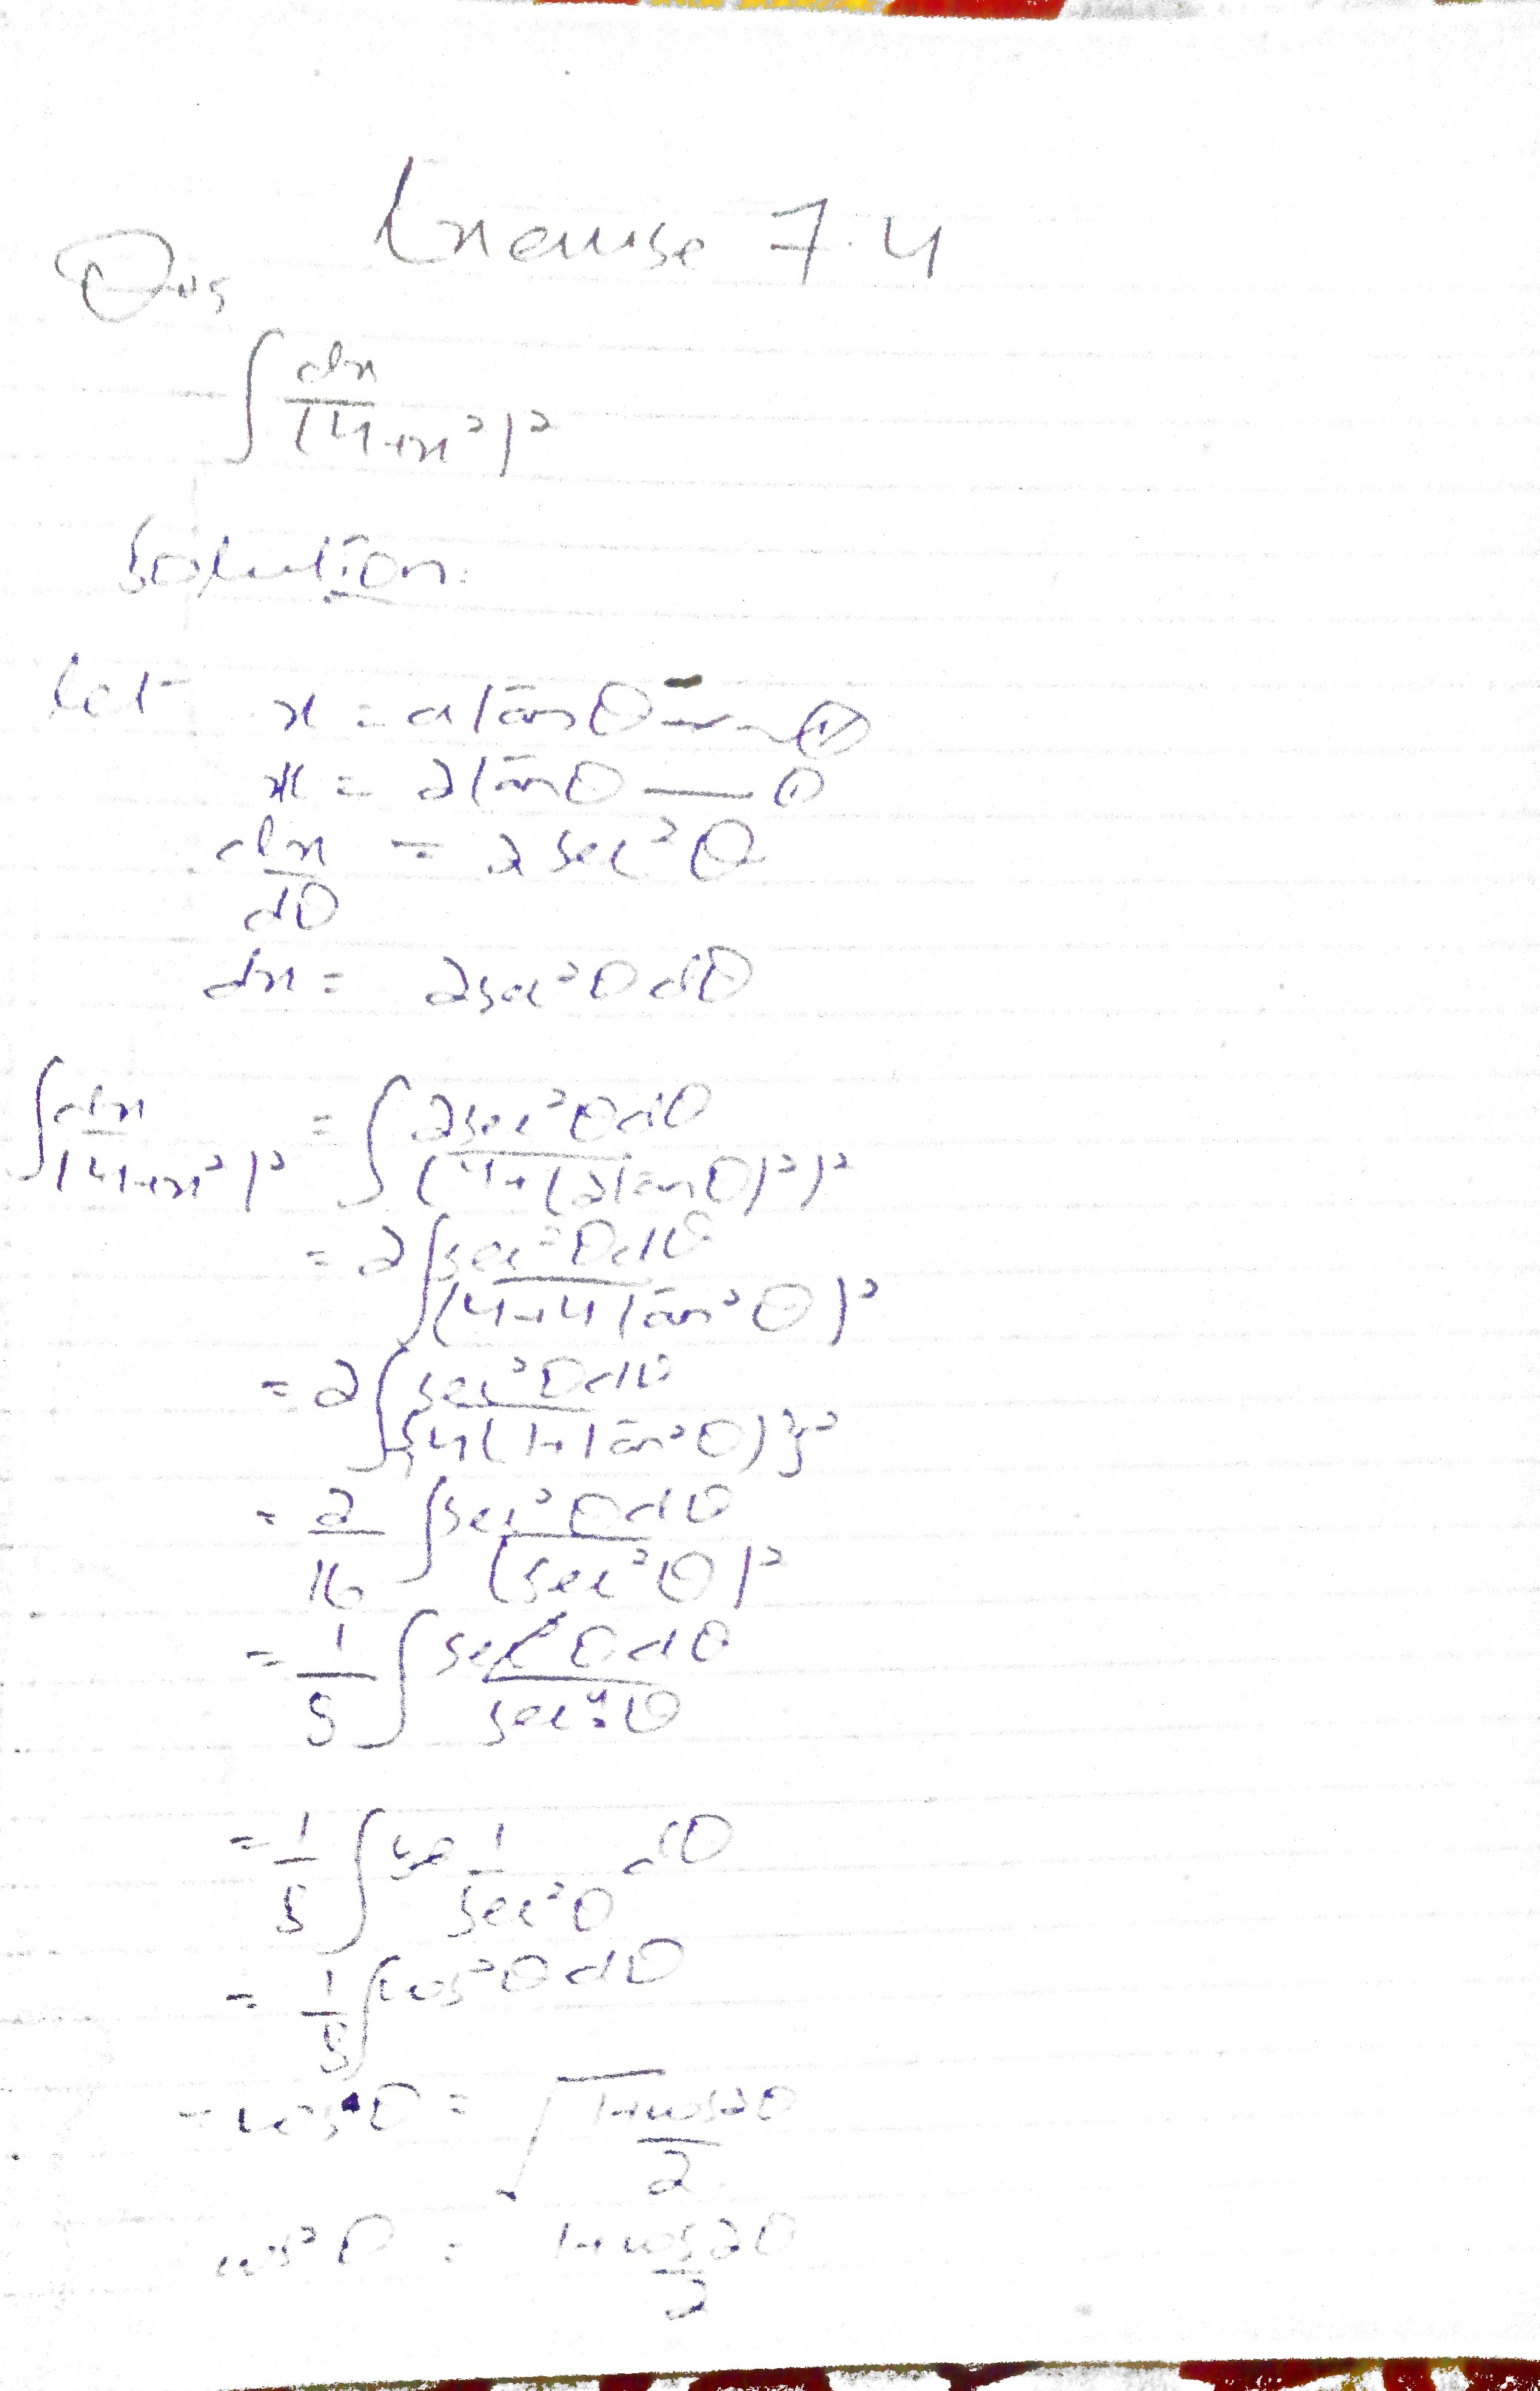 Exercise 7.4
Q#5
∫ dx/(4+x²)²
Solution:
Let x = a tanθ —
x = 2 tanθ — ①
dx/dθ = 2 sec²θ
dx = 2 sec²θ dθ
∫ dx/(4+x²)² = ∫ 2 sec²θ dθ/(4+(2 tanθ)²)²
= 2 ∫ sec²θ dθ/(4+4 tan²θ)²
= 2 ∫ sec²θ dθ/{4(1+tan²θ)}²
= 2/16 ∫ sec²θ dθ/(sec²θ)²
= 1/8 ∫ sec²θ dθ/sec⁴θ
= 1/8 ∫ 1/sec²θ dθ
= 1/8 ∫ cos²θ dθ
- cosθ = √(1+cos2θ)/2
cos²θ = 1+cos2θ/2